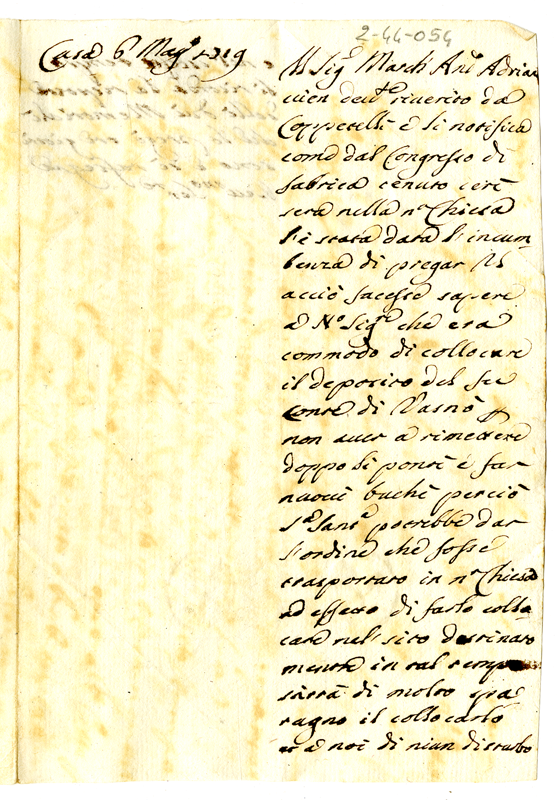 2-44-054
Casa 6 Mag.o 1719
Ill Sig.r March Ant.o Adrian
vien dev.te riverito da
Coppetelli e li notifica
come dal Congresso di
fabrica tenuto ieri
sera nella n.ra Chiesa
l'è stata data l'incum-
benza di pregar Ill
acciò facesse sapere
a N.ro Sig.re che era
commodo di collocare
il deposito del fu
Conte di Vasnò p
non aver a rimettere
doppo li ponti e far
nuovi buchi perciò
S.a San.ta potrebbe dar
l'ordine che fosse
trasportato in n.ra Chiesa
ad effetto di farlo collo
care nel sito destinato
mentre in tal tempo
sarrà di molto spa
ragno il collocarlo
e a noi di niun disturbo